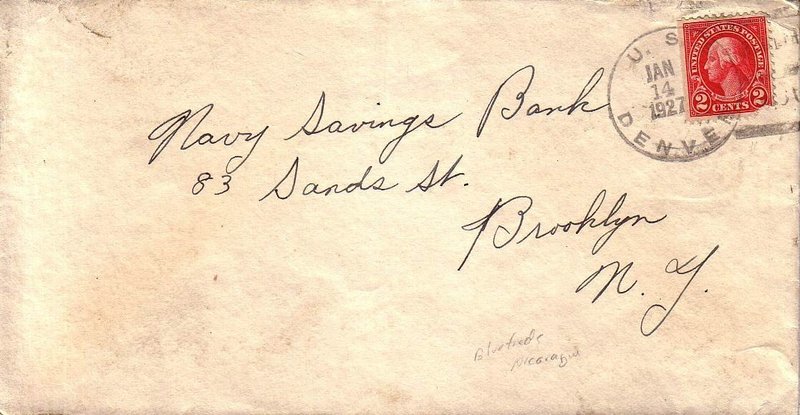 U. S.
JAN
14
1927
DENVER
UNITED STATES POSTAGE
2 CENTS 2
Navy Savings Bank
83 Sands St.
Brooklyn
N. Y.
Nicaragua